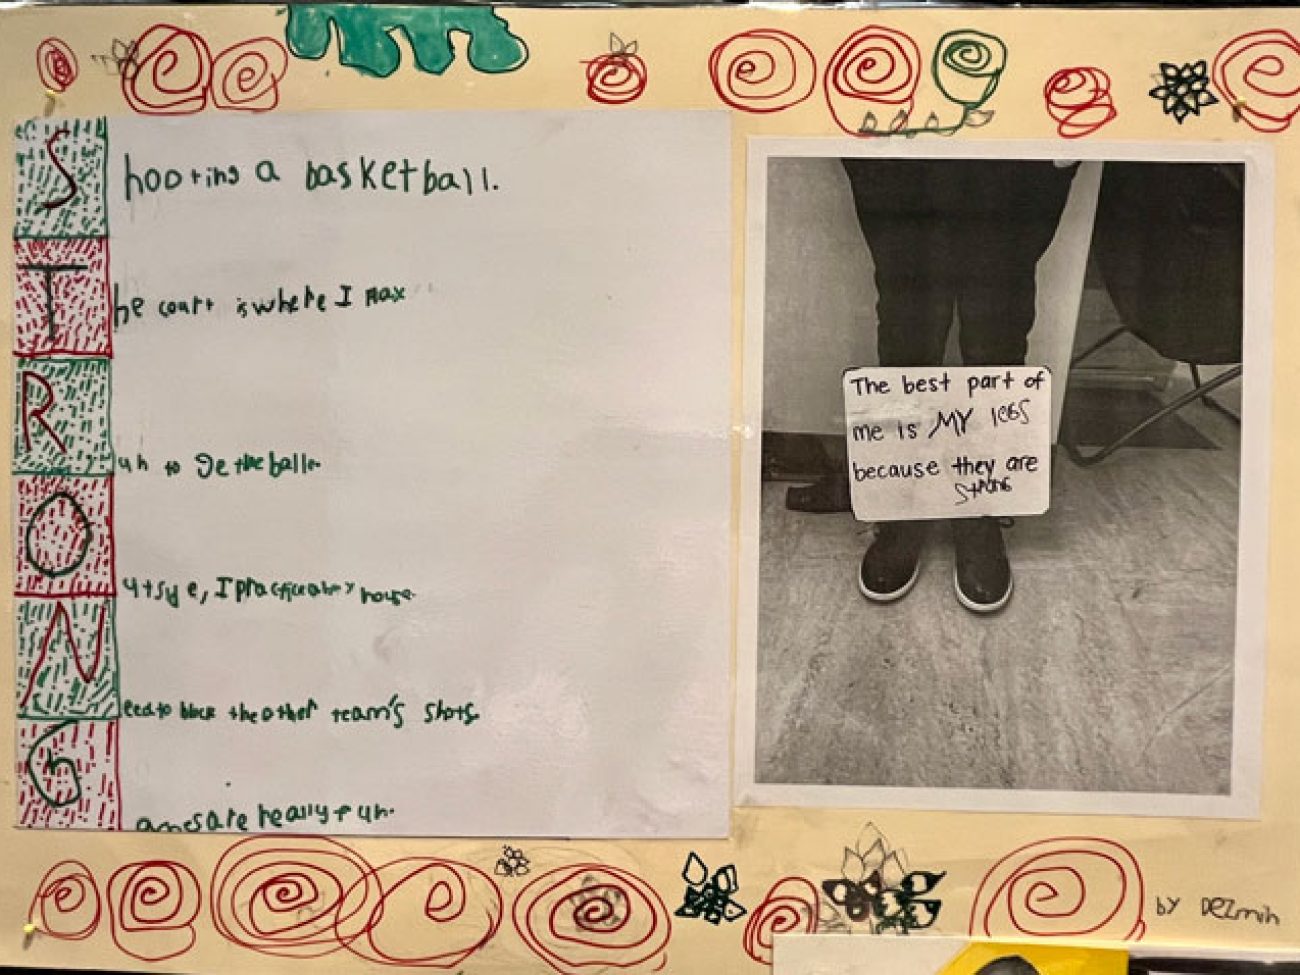 Shooting a basketball.
The court is where I
Run to Ge the ball.
Outsyde, I practice at my house.
Need to block the other team's shots.
Games are really fun.
The best part of
me is MY legs
because they are
strong
by Dezmin